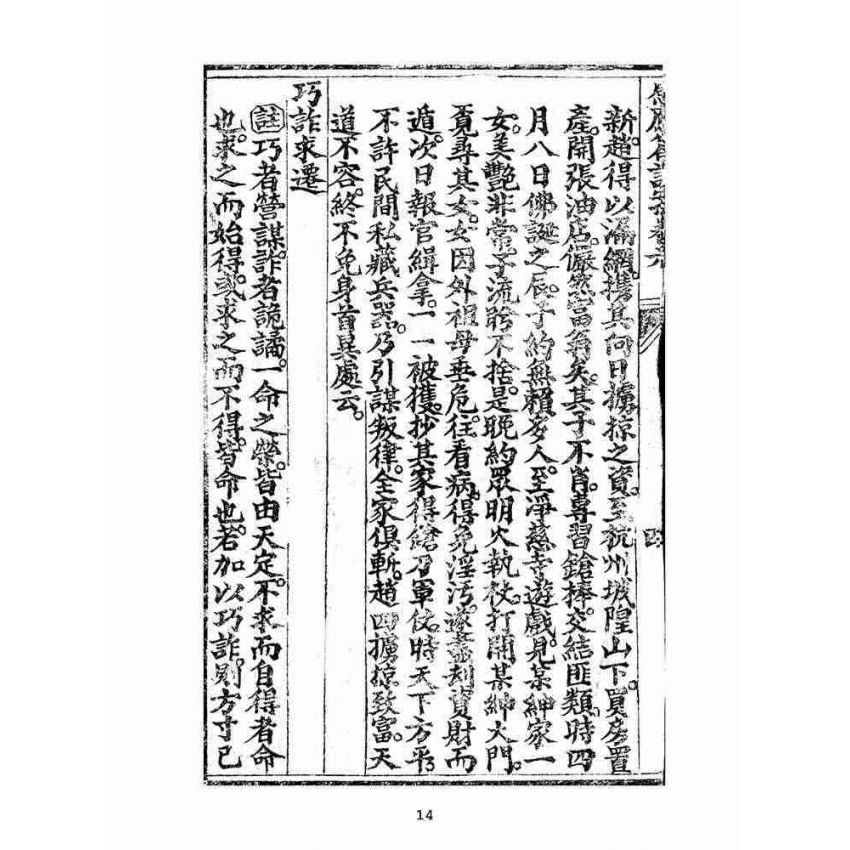 新。趙得以漏網。攜其向日擄掠之資。至杭州城隍山下。買房置
產。開張油店。儼然富翁矣。其子不肖。專習鎗棒。交結匪類。時四
月八日佛誕之辰。子約無賴多人。至淨慈寺遊戲。見某紳家一
女。美艷非常。子流盼不捨。是晚約眾明火執仗。打開某紳大門。
覓尋其女。女因外祖母垂危。往看病。得免淫污。遂盡刦資財而
遁。次日報官緝拿。一一被獲。抄其家。得鎗刀軍仗。時天下方平。
不許民間私藏兵器。乃引謀叛律。全家俱斬。趙四擄掠致富。天
道不容。終不免身首異處云。
巧詐求遷
註巧者營謀。詐者詭譎。一命之榮。皆由天定。不求而自得者命
也。求之而始得。或求之而不得。皆命也。若加以巧詐。則方寸已
14